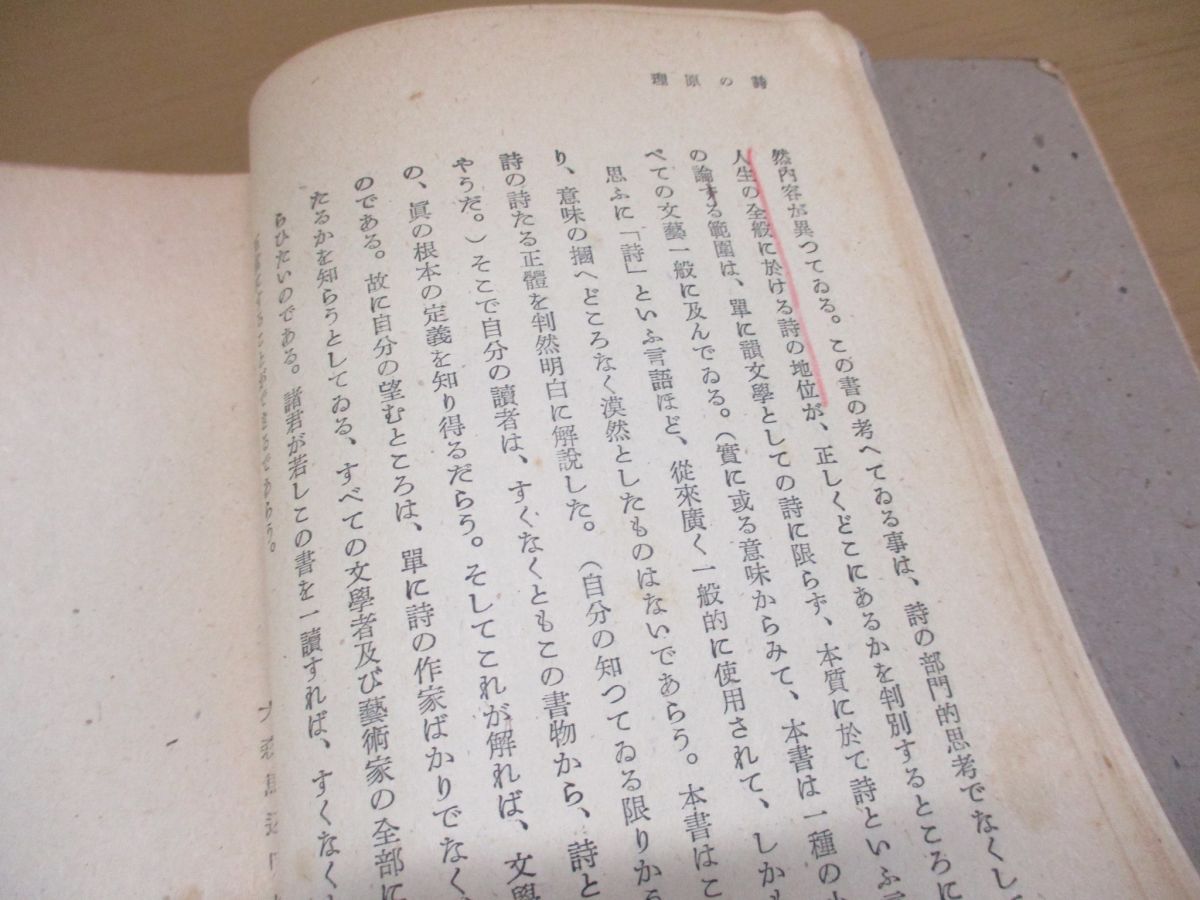 詩の原理
然內容が異つてゐる。この書の考へてゐる事は、詩の部門的思考でなくし
人生の全般に於ける詩の地位が、正しくどこにあるかを判別するところに
の論ずる範圍は、單に韻文學としての詩に限らず、本質に於て詩といふ言
べての文藝一般に及んでゐる。（實に或る意味からみて、本書は一種の
思ふに「詩」といふ言語ほど、從來廣く一般的に使用されて、しかも
り、意味の摑へどころなく漠然としたものはないであらう。本書はこ
詩の詩たる正體を判然明白に解說した。（自分の知つてゐる限りから
やうだ。）そこで自分の讀者は、すくなくともこの書物から、詩と
の、眞の根本の定義を知り得るだらう。そしてこれが解れば、文學
のである。故に自分の望むところは、單に詩の作家ばかりでなく
たるかを知らうとしてゐる、すべての文學者及び藝術家の全部に
らひたいのである。諸君が若しこの書を一讀すれば、すくなく
できるであらう。